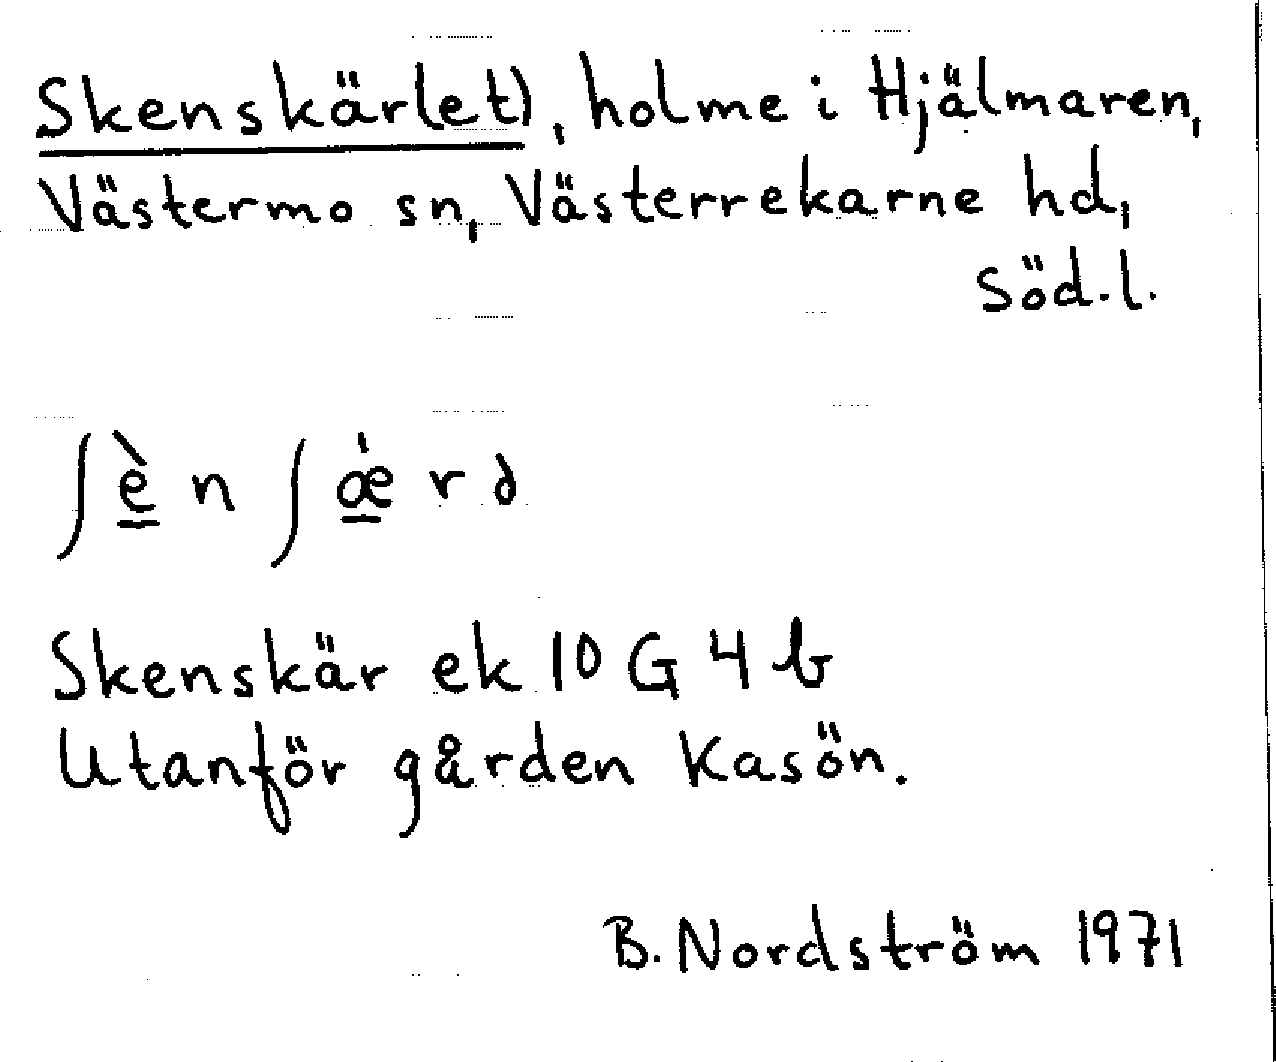 Skenskär(et), holme i Hjälmaren,
Västermo sn, Västerrekarne hd,
Söd.l.
ʃè̱nʃǽ̱rə
Skenskär ek 10 G 4 b
Utanför gården Kasön.
B. Nordström 1971